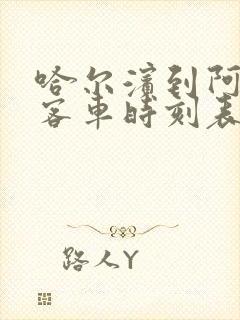 哈尔滨到阿
客车时刻表
路人Y